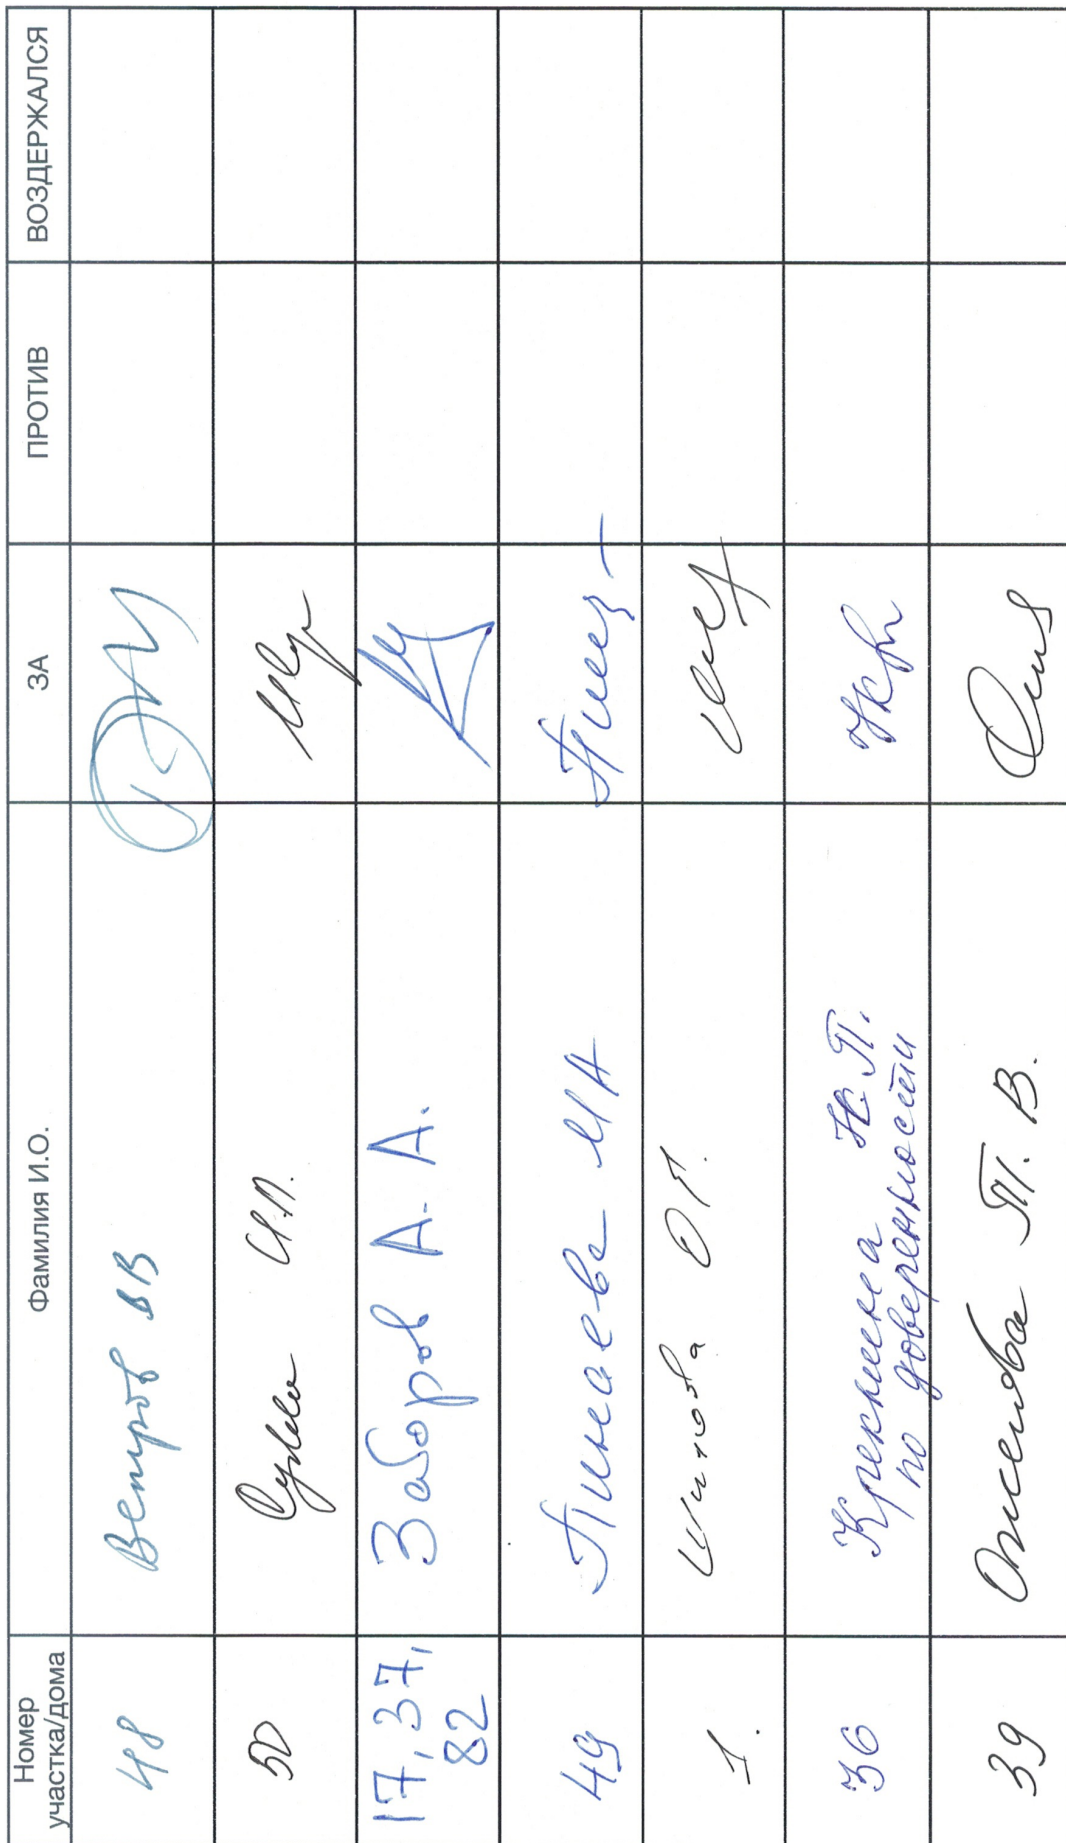 Номер участка/дома Фамилия И.О. ЗА ПРОТИВ ВОЗДЕРЖАЛСЯ
48 Вепров ВВ
50 И.П.
17, 37, 82 Заборов А. А.
49 Пинаева МА
1. Шитова О.П.
36 Крекнина Н.П. по доверенности
39 Т. В.